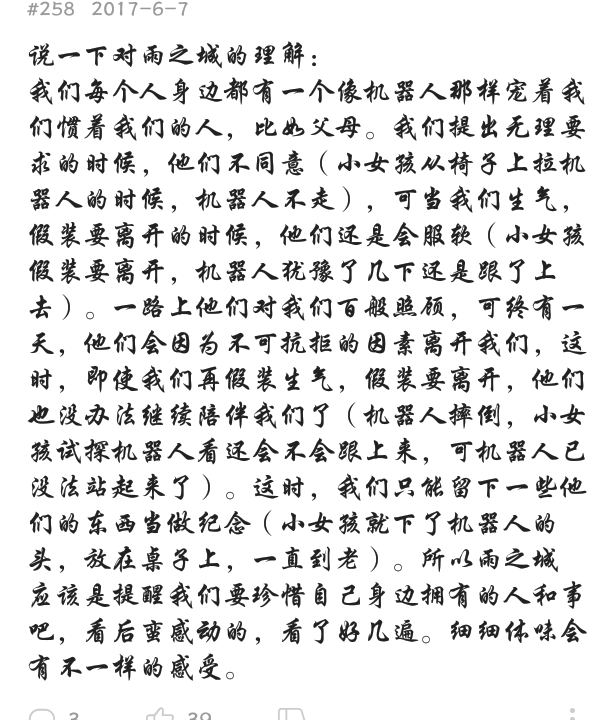 #258 2017-6-7
说一下对雨之城的理解：
我们每个人身边都有一个像机器人那样宠着我
们惯着我们的人，比如父母。我们提出无理要
求的时候，他们不同意（小女孩从椅子上拉机
器人的时候，机器人不走），可当我们生气，
假装要离开的时候，他们还是会服软（小女孩
假装要离开，机器人犹豫了几下还是跟了上
去）。一路上他们对我们百般照顾，可终有一
天，他们会因为不可抗拒的因素离开我们，这
时，即使我们再假装生气，假装要离开，他们
也没办法继续陪伴我们了（机器人摔倒，小女
孩试探机器人看还会不会跟上来，可机器人已
没法站起来了）。这时，我们只能留下一些他
们的东西当做纪念（小女孩就下了机器人的
头，放在桌子上，一直到老）。所以雨之城
应该是提醒我们要珍惜自己身边拥有的人和事
吧，看后蛮感动的，看了好几遍。细细体味会
有不一样的感受。
3 39